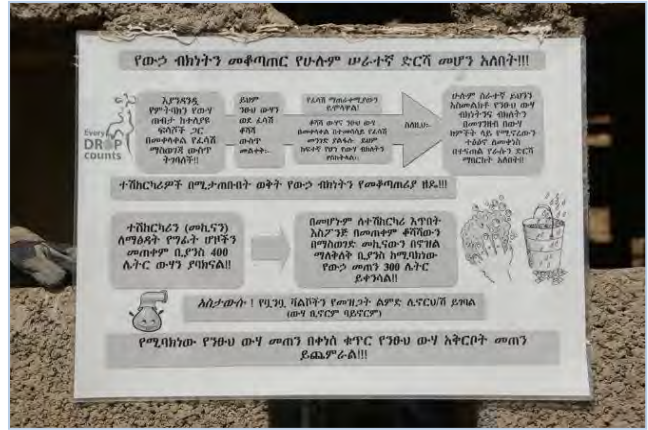 የውኃ ብክነትን መቆጣጠር የሁሉም ሠራተኛ ድርሻ መሆን አለበት!!!
Every
DROP
counts
እያንዳንዷ
የምትባክን የውሃ
ጠብታ ከተለያዩ
ፍሳሾች ጋር
በመቀላቀል የፈሳሽ
ማስወገጃ ውስጥ
ትገባለች!!
ይህም
ንፁህ ውሃን
ወደ ፈሳሽ
ቆሻሻ
ውስጥ
መልቀቅ፡
የፈሳሽ ማጠራቀሚያውን
ይሞላዋል!
ቆሻሻ ውሃና ንፁህ ውሃ
በመቀላቀል በተመሳሳይ የፈሳሽ
መንገድ ያልፋሉ፡ ይህም
ከፍተኛ የሆነ የውሃ ብክለትን
ያስከትላል፡
ስለዚህ፡
ሁሉም ሰራተኛ ይህንን
አስመልክቶ የንፁህ ውሃ
ብክነትንና ብክለትን
በመገንዘብ በውሃ
ሃምቶች ላይ የሚኖረውን
ተፅዕኖ ለመቀነስ
በተናጠል የራሱን ድርሻ
ማበርከት አለበት!!
ተሽከርካሪዎች በሚታጠቡበት ወቅት የውኃ ብክነትን የመቆጣጠሪያ ዘዴ!!!
ተሽከርካሪን (መኪናን)
ለማፅዳት የግፊት ሆዞችን
መጠቀም ቢያንስ 400
ሌትር ውሃን ያባክናል!!
በመሆኑም ለተሽከርካሪ እጥበት
እስፖንጅ በመጠቀም ቆሻሻውን
በማስወገድ መኪናውን በኖዝል
ማለቅለቅ ቢያንስ ከሚባክነው
የውኃ መጠን 300 ሌትር
ይቀንሳል!!
አስታውሱ ! የቧንቧ ቫልቮችን የመዝጋት ልምድ ሊኖርህ/ሽ ይገባል
(ውሃ ቢኖርም ባይኖርም)
የሚባክነው የንፁህ ውሃ መጠን በቀነሰ ቁጥር የንፁህ ውሃ አቅርቦት መጠን
ይጨምራል!!!